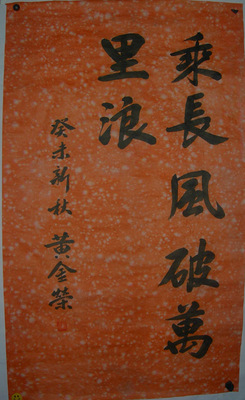 乘長風破萬
里浪
癸未新秋 黃金榮